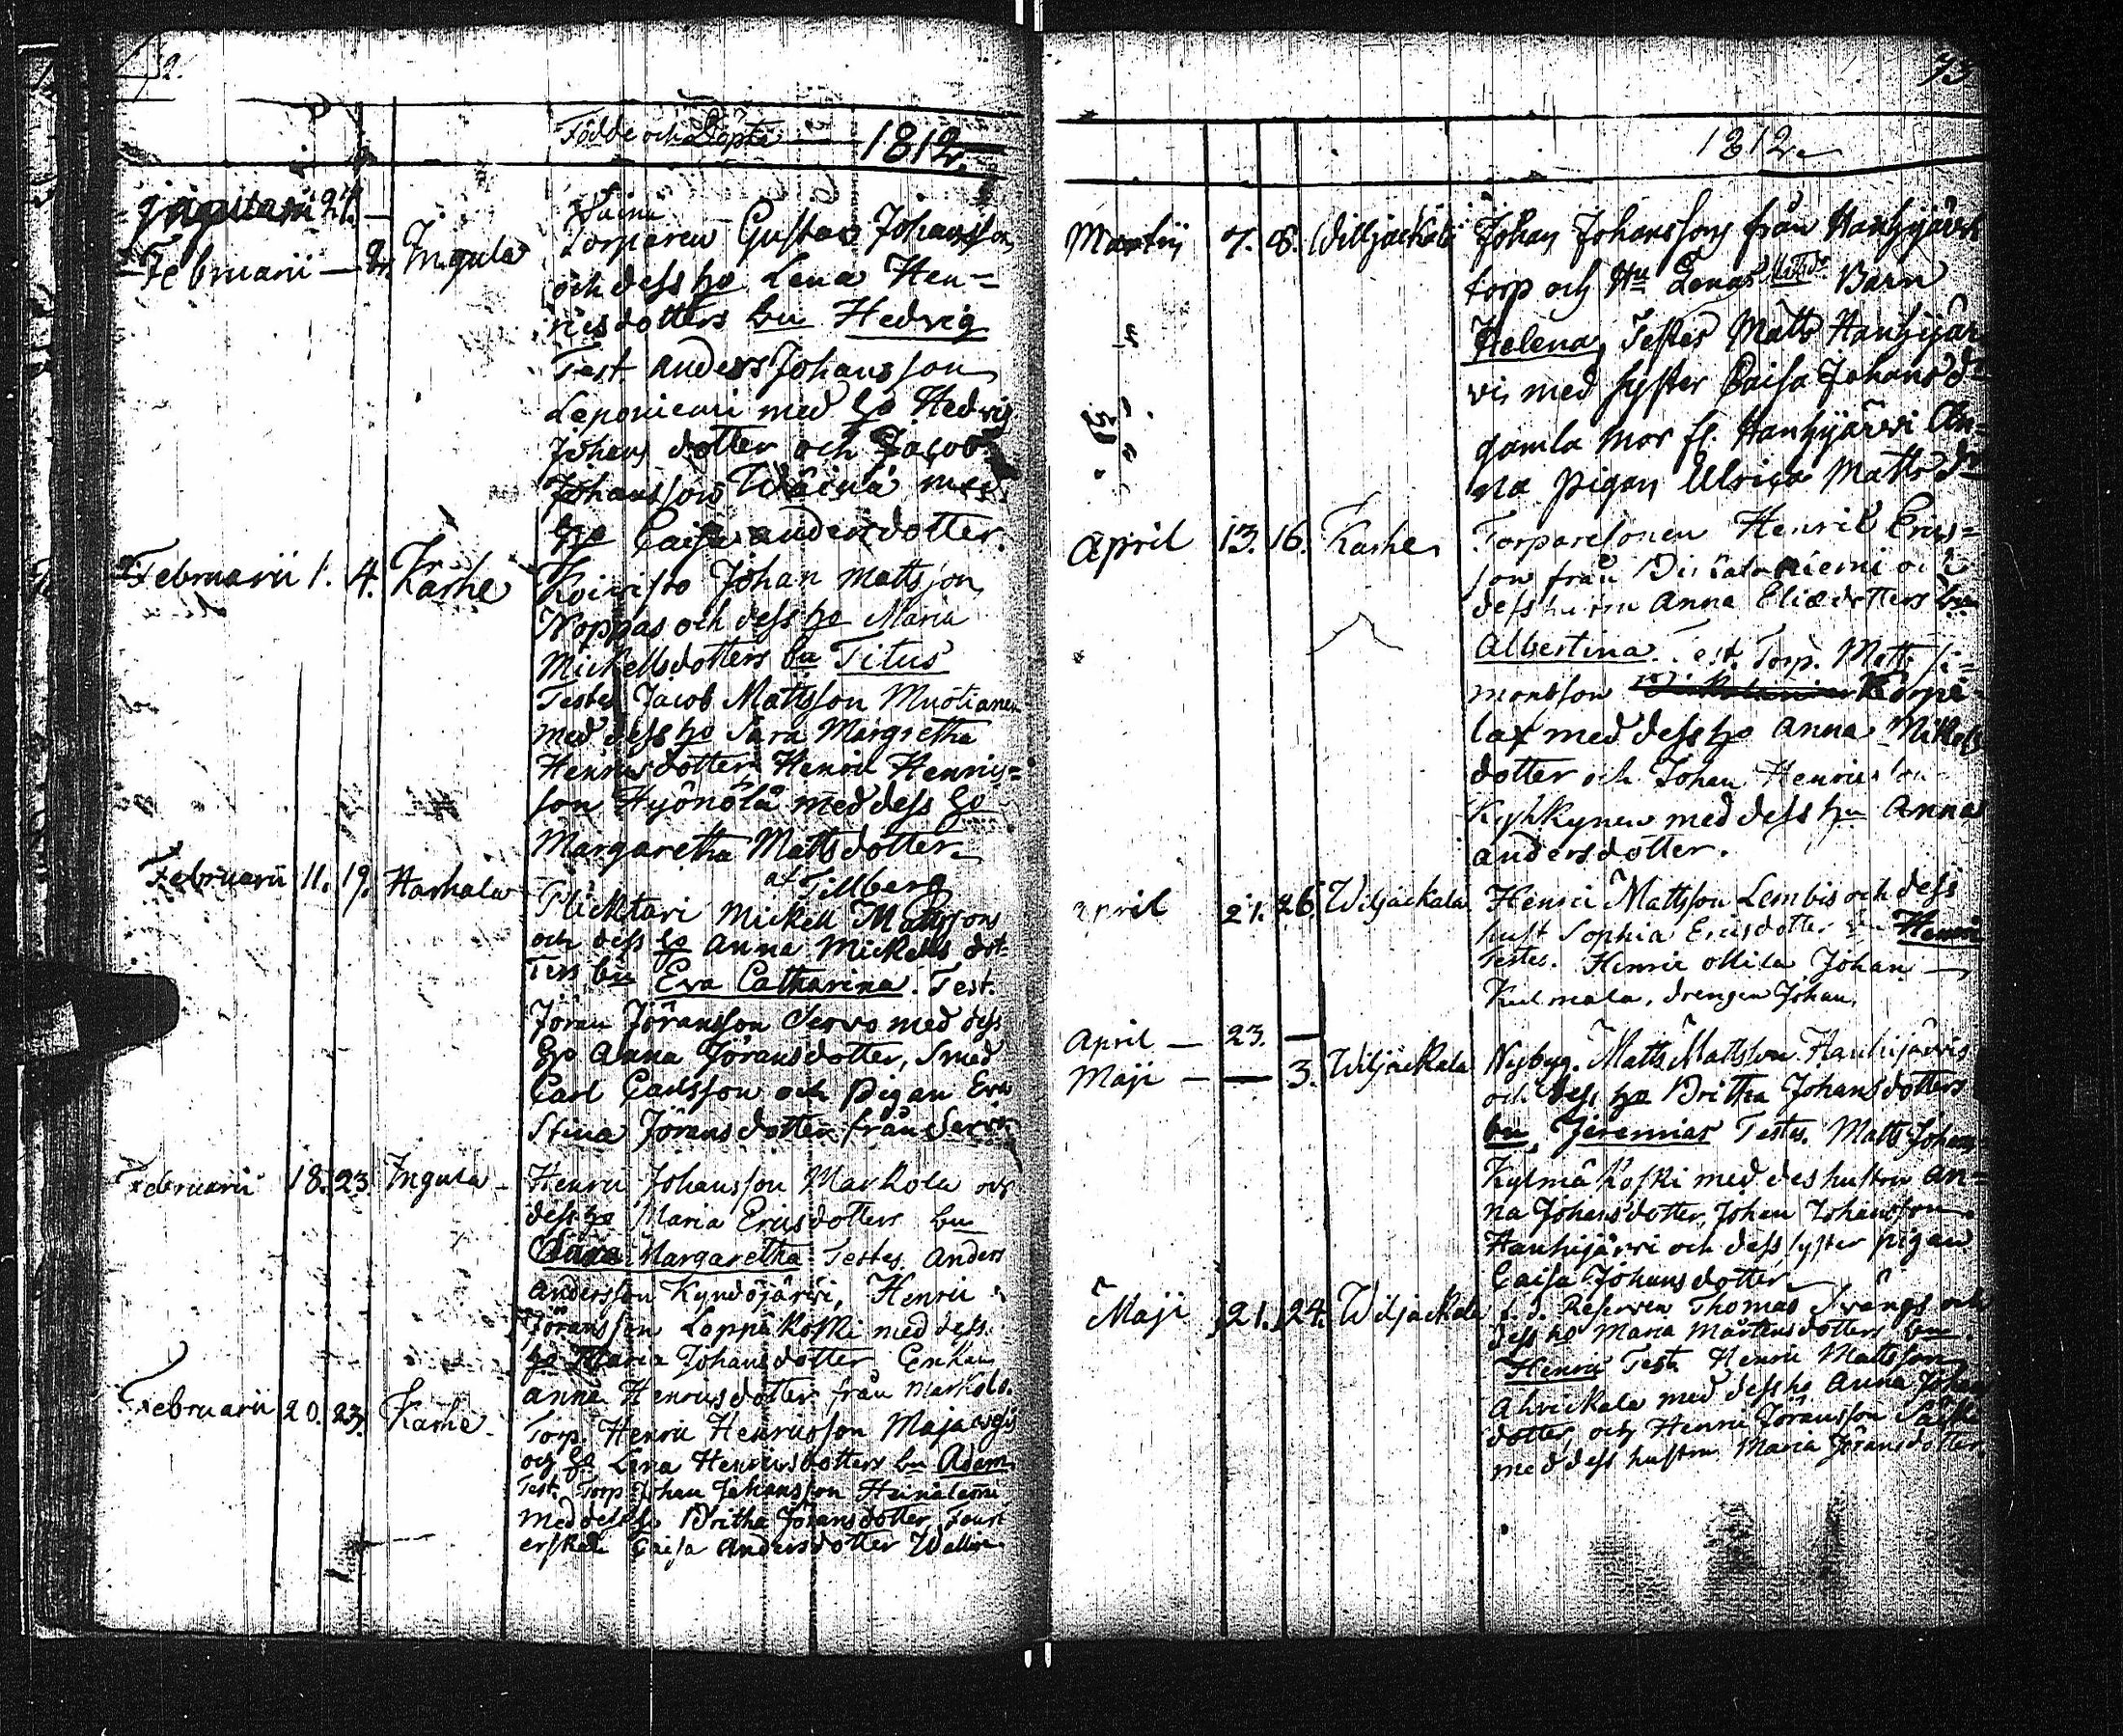 72.
Födde och Döpte — 1812.
Januarii 27. —
Februarii — 2. Ingula
Wäinä
Torparen Gustav Johansson
och dess ho Lena Hen=
ricsdotters bn Hedvig
Test. Anders Johansson
Leponiemi med ho Hedvig
Johans dotter och Jacob
Johansson Wäinä med
ho Caisa andersdotter.
Februarii 1. 4. Karhe
Koivisto Johan Mattsson
Noppas och dess ho Maria
Mickellsdotters bn Titus
Testes Jacob Mattsson Muotianen
med dess ho Sara Margretha
Henricsdotter, Henric Henrics=
son Hyönölä med dess ho
Margaretha Mattsdotter
Februarii 11. 19. Harhala
af Tillberg
Mickell Mattssons
och dess ho Anna Mickells dot
ters bn Eva Catharina. Test.
Jöran Jöransson Servo med dess
ho Anna Jöransdotter, Smed
Carl Carlsson och Pigan Eva
Stina Jöransdotter från Servo
Februarii 18. 23 Ingula
Henric Johansson Markola och
dess ho Maria Ericsdotters bn
Margaretha Testes. Anders
Andersson Kyndöjärvi, Henric
Jöransson Loppikoski med dess
ho Maria Johansdotter Enkan
Anna Henricsdotter från Markola.
Februarii 20. 23. Karhe.
Torp. Henric Henricsson Maja
och ho Lena Henricsdotters bn Adam
Test. Torp Johan Johansson Heinälammi
med dess ho Britha Jöransdotter,
Caisa Andersdotter Wallin.
73
1812.
Martii 7. 8. Williackala
Johan Johanssons från Hanhijärvi
torp och Hu Lenas Mattsdr Barn
Helena, Testes Matts Hanhijär
vi, med syster Caisa Johansdr
gamla mor fl. Hanhijärvi An=
na pigan Ulrica Mattsdr
April 13. 16. Karhe
Torparesonen Henric Erics=
son från och
dess hustru Anna Eliædotters bn
Albertina. Test. Torp. Matts Si=
monsson Korpi
lax med dess ho Anna Mickels
dotter och Johan Henricsson
Kyhkynen med dess hu Anna
andersdotter.
April 21. 26. Wiljackala
Henric Mattsson Lembis och dess
hust Sophia Ericsdotter bn Henric
Testes. Henric Mila Johan —
Kulmala, drengen Johan.
April — 23. —
Maji — — 3. Wiljackala
Nybyg. Matts Mattsson Hanhijärvis
och dess ho Britha Johansdotters
bn, Jeremias Testes. Matts Johan
Kylmäkoski med des hustru An=
na Johansdotter, Johan Johansson
Hanhijärvi och dess syster pigan
Caisa Johansdotter
Maji 21. 24. Wiljackala
f. d. Reserven Thomas Svangs och
dess ho Maria Mårtensdotters bn.
Henric Test. Henric Mattsson
Ahrickala med dess ho Anna Johans
dotter, och Henric Jöransson
med dess hustru Maria Jöransdotter.